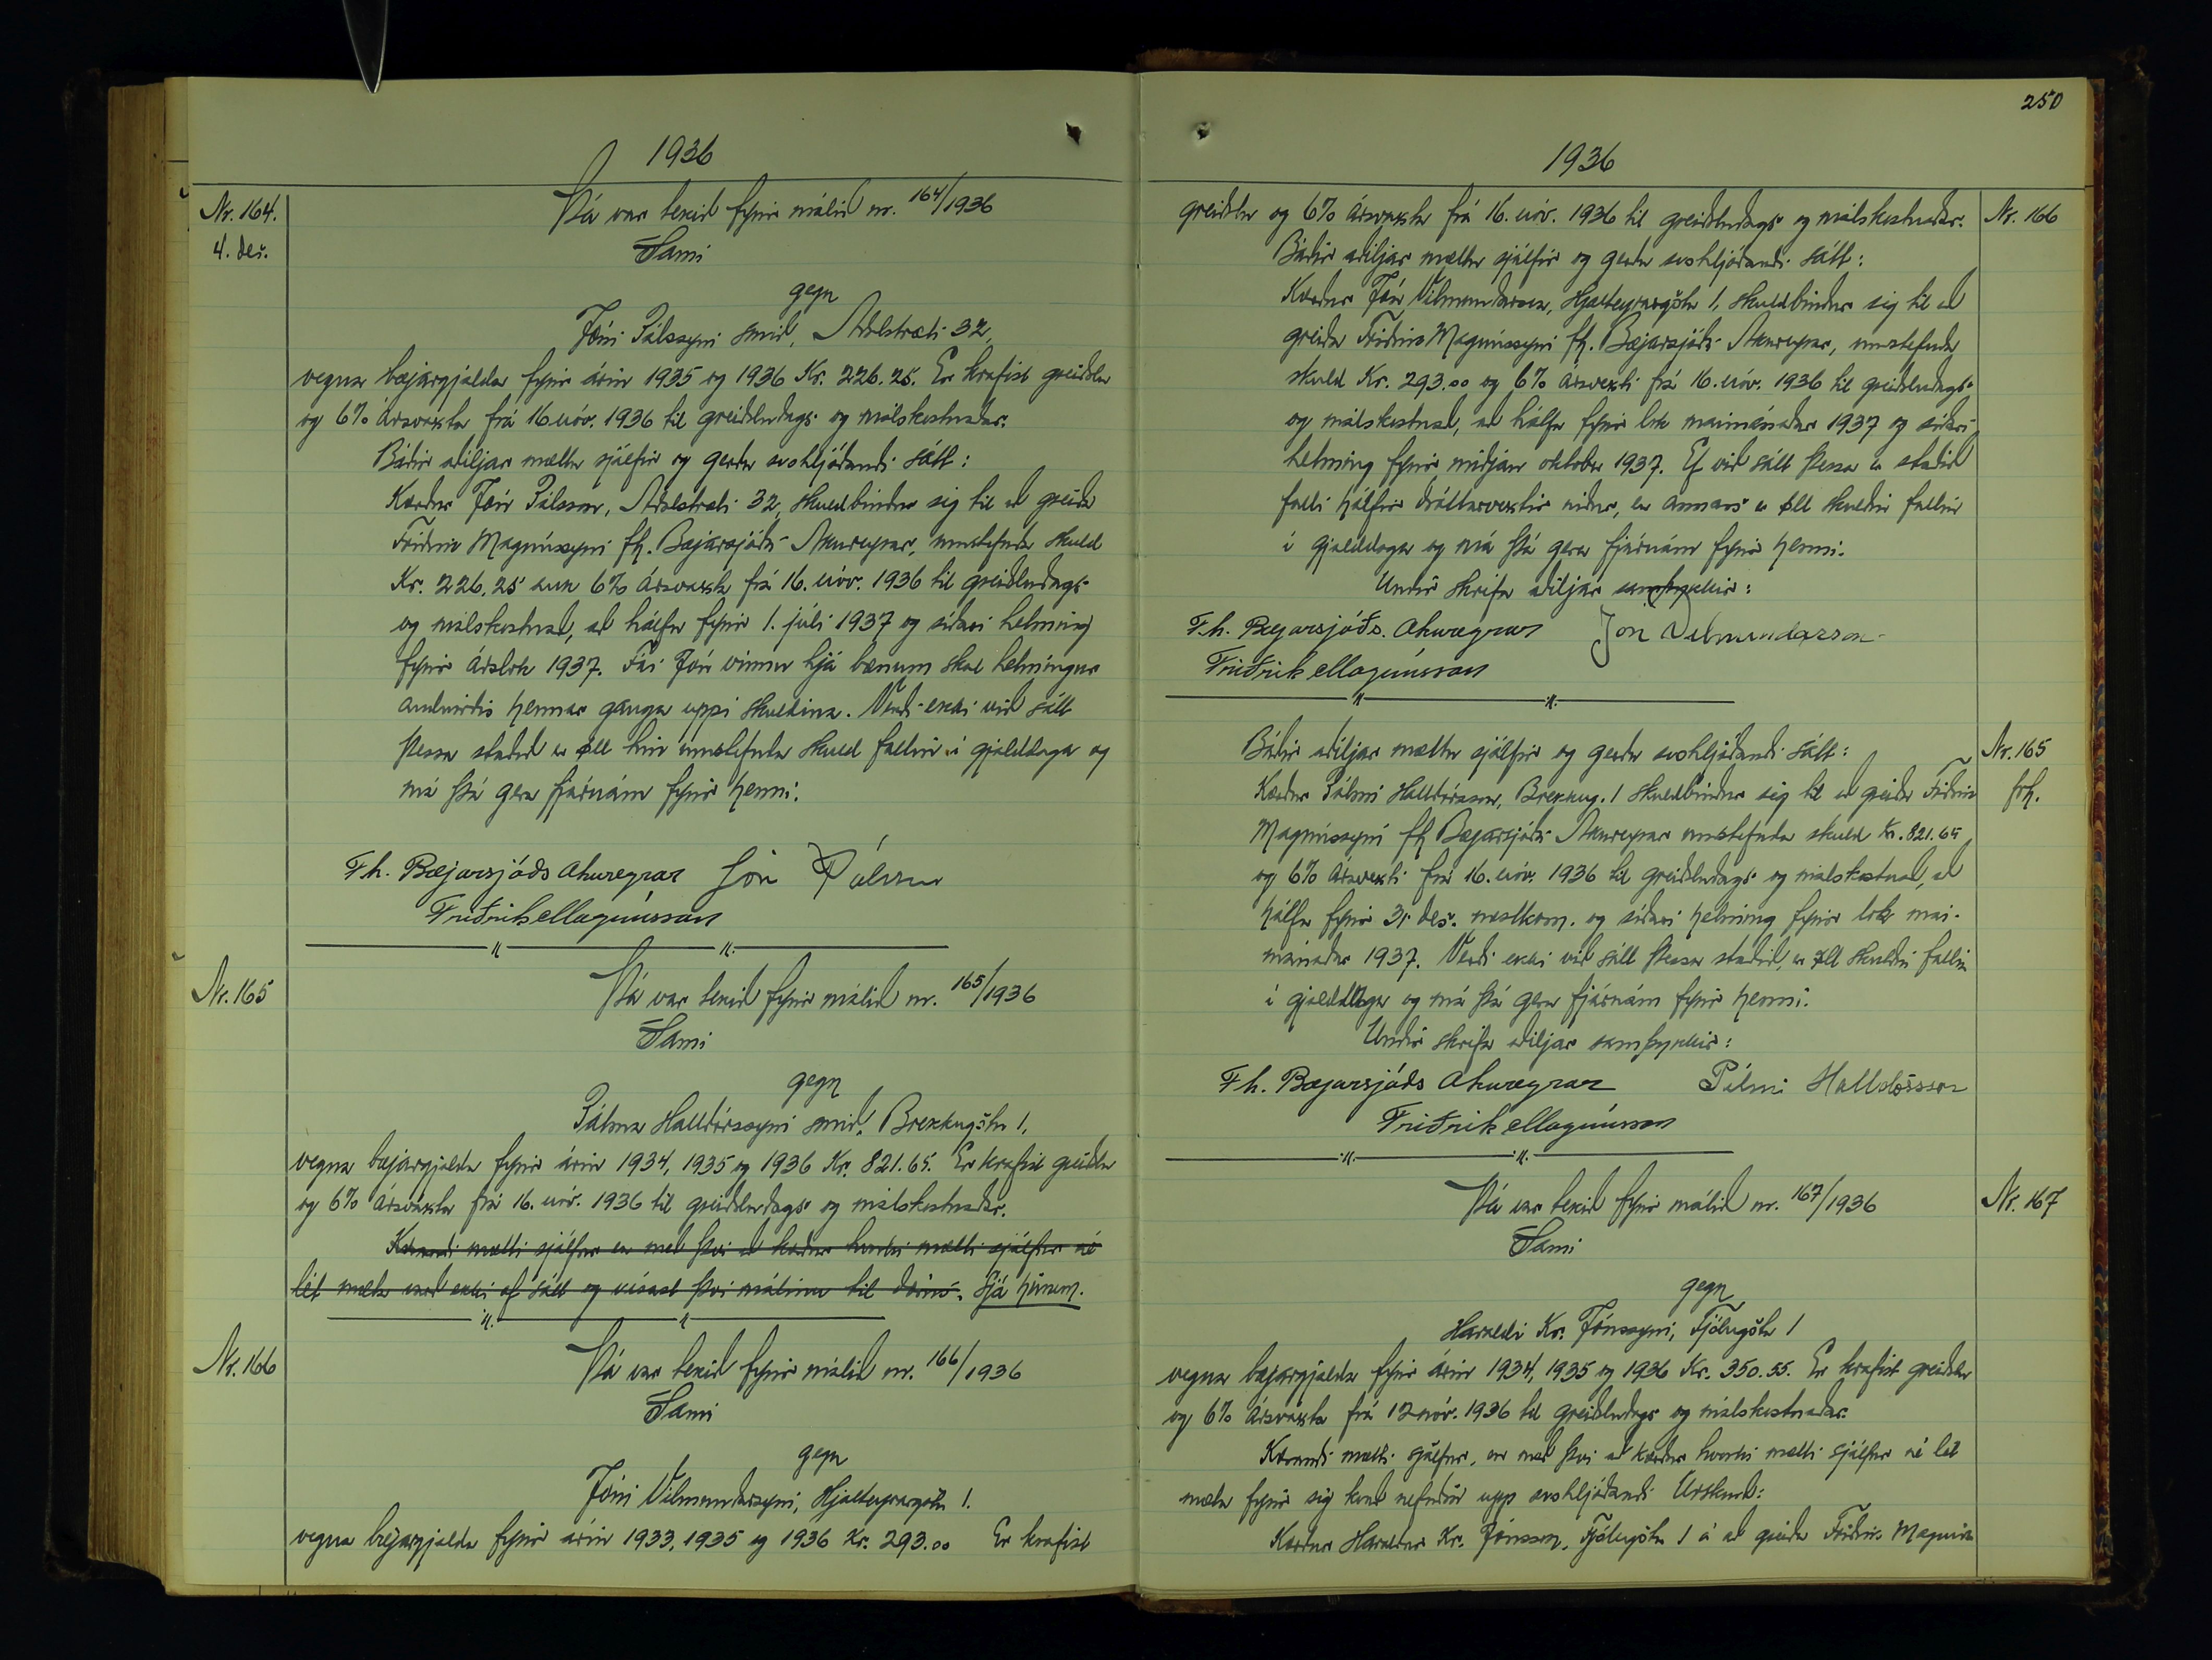 1936
Nr. 164.
Þá var tekið fyrir málið nr. 164/1936
4. des.
Sami
gegn
Jóni Pálssyni smið, Aðalstræti 32,
vegna bæjargjalda fyrir árin 1935 og 1936 Kr. 226.25. Er krafist greiðslu
og 6% ársvaxta frá 16 nóv. 1936 til greiðsludags og málskostnaðar.
Báðir aðiljar mættu sjálfir og gerðu svohljóðandi sátt:
Kærður Jón Pálsson, Aðalstræti 32, skuldbindur sig til að greiða
Friðrik Magnússyni fh. Bæjarsjóðs Akureyrar, umstefnda skuld
Kr. 226.25 auk 6% ársvaxta frá 16. nóv. 1936 til greiðsludags
og málskostnað, að hálfu fyrir 1. júli 1937 og síðari helming
fyrir árslok 1937. Fái Jón vinnu hjá bænum skal helmingur
andvirðis hennar ganga uppi skuldina. Verði ekki við sátt
þessa staðið er öll hin umstefnda skuld fallin í gjalddaga og
má þá gera fjárnám fyrir henni.
F.h. Bæjarsjóðs Akureyrar Jón Pálsson
Friðrik Magnússon
Nr. 165
Þá var tekið fyrir málið nr. 165/1936
Sami
gegn
Pálma Halldórssyni smið, Brekkugötu 1,
vegna bæjargjalda fyrir árin 1934, 1935 og 1936 Kr. 821.65. Er krafist greiðslu
og 6% ársvaxta frá 16. nóv. 1936 til greiðsludags og málskostnaðar.
Kærandi mætti sjálfur en með því að kærður hvorki mætti sjálfur né
lét mæta varð ekki af sátt og vísast því málinu til dóms. Sjá hinum.
Nr. 166
Þá var tekið fyrir málið nr. 166/1936
Sami
gegn
Jóni Vilmundarsyni, Hjalteyrargötu 1.
vegna bæjargjalda fyrir árin 1933, 1935 og 1936 Kr. 293.00 Er krafist
250
1936
greiðslu og 6% ársvaxta frá 16. nóv. 1936 til greiðsludags og málskostnaðar.
Nr. 166
Báðir aðiljar mættu sjálfir og gerðu svohljóðandi sátt:
Kærður Jón Vilmundarson, Hjalteyrargötu 1, skuldbindur sig til að
greiða Friðrik Magnússyni fh. Bæjarsjóðs Akureyrar, umstefnda
skuld Kr. 293.00 og 6% ársvexti frá 16. nóv. 1936 til greiðsludags
og málskostnað, að hálfu fyrir lok maimánaðar 1937 og síðari
helming fyrir miðjan oktober 1937. Ef við sátt þessa er staðið
falli hálfir dráttarvextir niður, en annars er öll skuldin fallin
í gjalddaga og má þá gera fjárnám fyrir henni.
Undir skrifa aðiljar samþykkir:
F.h. Bæjarsjóðs. Akureyrar Jón Vilmundarson
Friðrik Magnússon
Báðir aðiljar mættu sjálfir og gerðu svohljóðandi sátt:
Nr. 165
frh.
Kærður Pálmi Halldórsson, Brekkug. 1 skuldbindur sig til að greiða Friðrik
Magnússyni fh Bæjarsjóðs Akureyrar umstefnda skuld Kr. 821.65
og 6% ársvexti frá 16. nóv. 1936 til greiðsludags og málskostnað, að
hálfu fyrir 31. des. næstkom. og síðari helming fyrir lok mai-
mánaðar 1937. Verði ekki við sátt þessa staðið, er öll skuldin fallin
í gjalddaga og má þá gera fjárnám fyrir henni.
Undir skrifa aðiljar samþykkir:
F.h. Bæjarsjóðs Akureyrar Pálmi Halldórsson
Friðrik Magnússon
Þá var tekið fyrir málið nr. 167/1936
Nr. 167
Sami
gegn
Haraldi Kr. Jónssyni, Fjólugötu 1
vegna bæjargjalda fyrir árin 1934, 1935 og 1936 Kr. 350.55. Er krafist greiðslu
og 6% ársvaxta frá 12 nóv. 1936 til greiðsludags og málskostnaðar.
Kærandi mætti sjálfur, en með því að kærður hvorki mætti sjálfur né lét
mæta fyrir sig kvað nefndin upp svohljóðandi Úrskurð:
Kærður Haraldur Kr. Jónsson, Fjólugötu 1 á að greiða Friðrik Magnúss